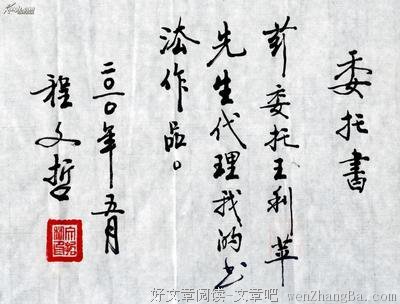 委托书
兹委托王利苹
先生代理我的书
法作品。
二〇一〇年五月
程文哲
好文章阅读-文章吧 wenZhangBa.com